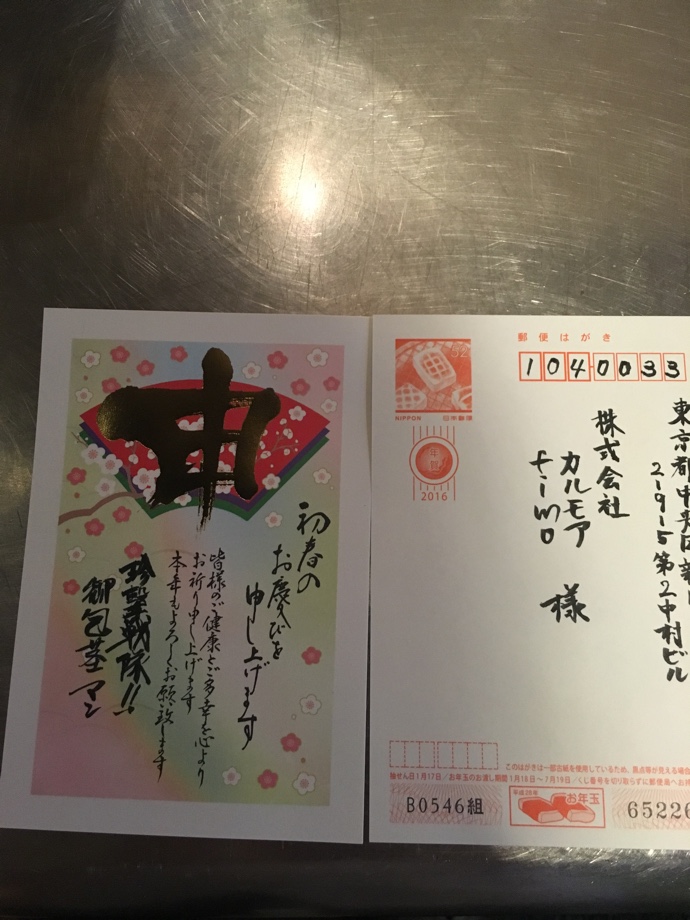 申
初春の
お慶びを
申し上げます
皆様のご健康とご多幸を心より
お祈り申し上げます
本年もよろしくお願い致します
珍聖戦隊!!
御包茎マン
郵便はがき
1040033
52
NIPPON 日本郵便
年賀
2016
東京都中央区新川
2-9-5 第2中村ビル
株式会社
カルモア
fimo 様
このはがきは一部古紙を使用しているため、黒点等が見える場合
抽せん日1月17日/お年玉のお渡し期間1月18日〜7月19日/くじ番号を切り取らずに郵便局へお持
B0546組
平成28年
お年玉
65226